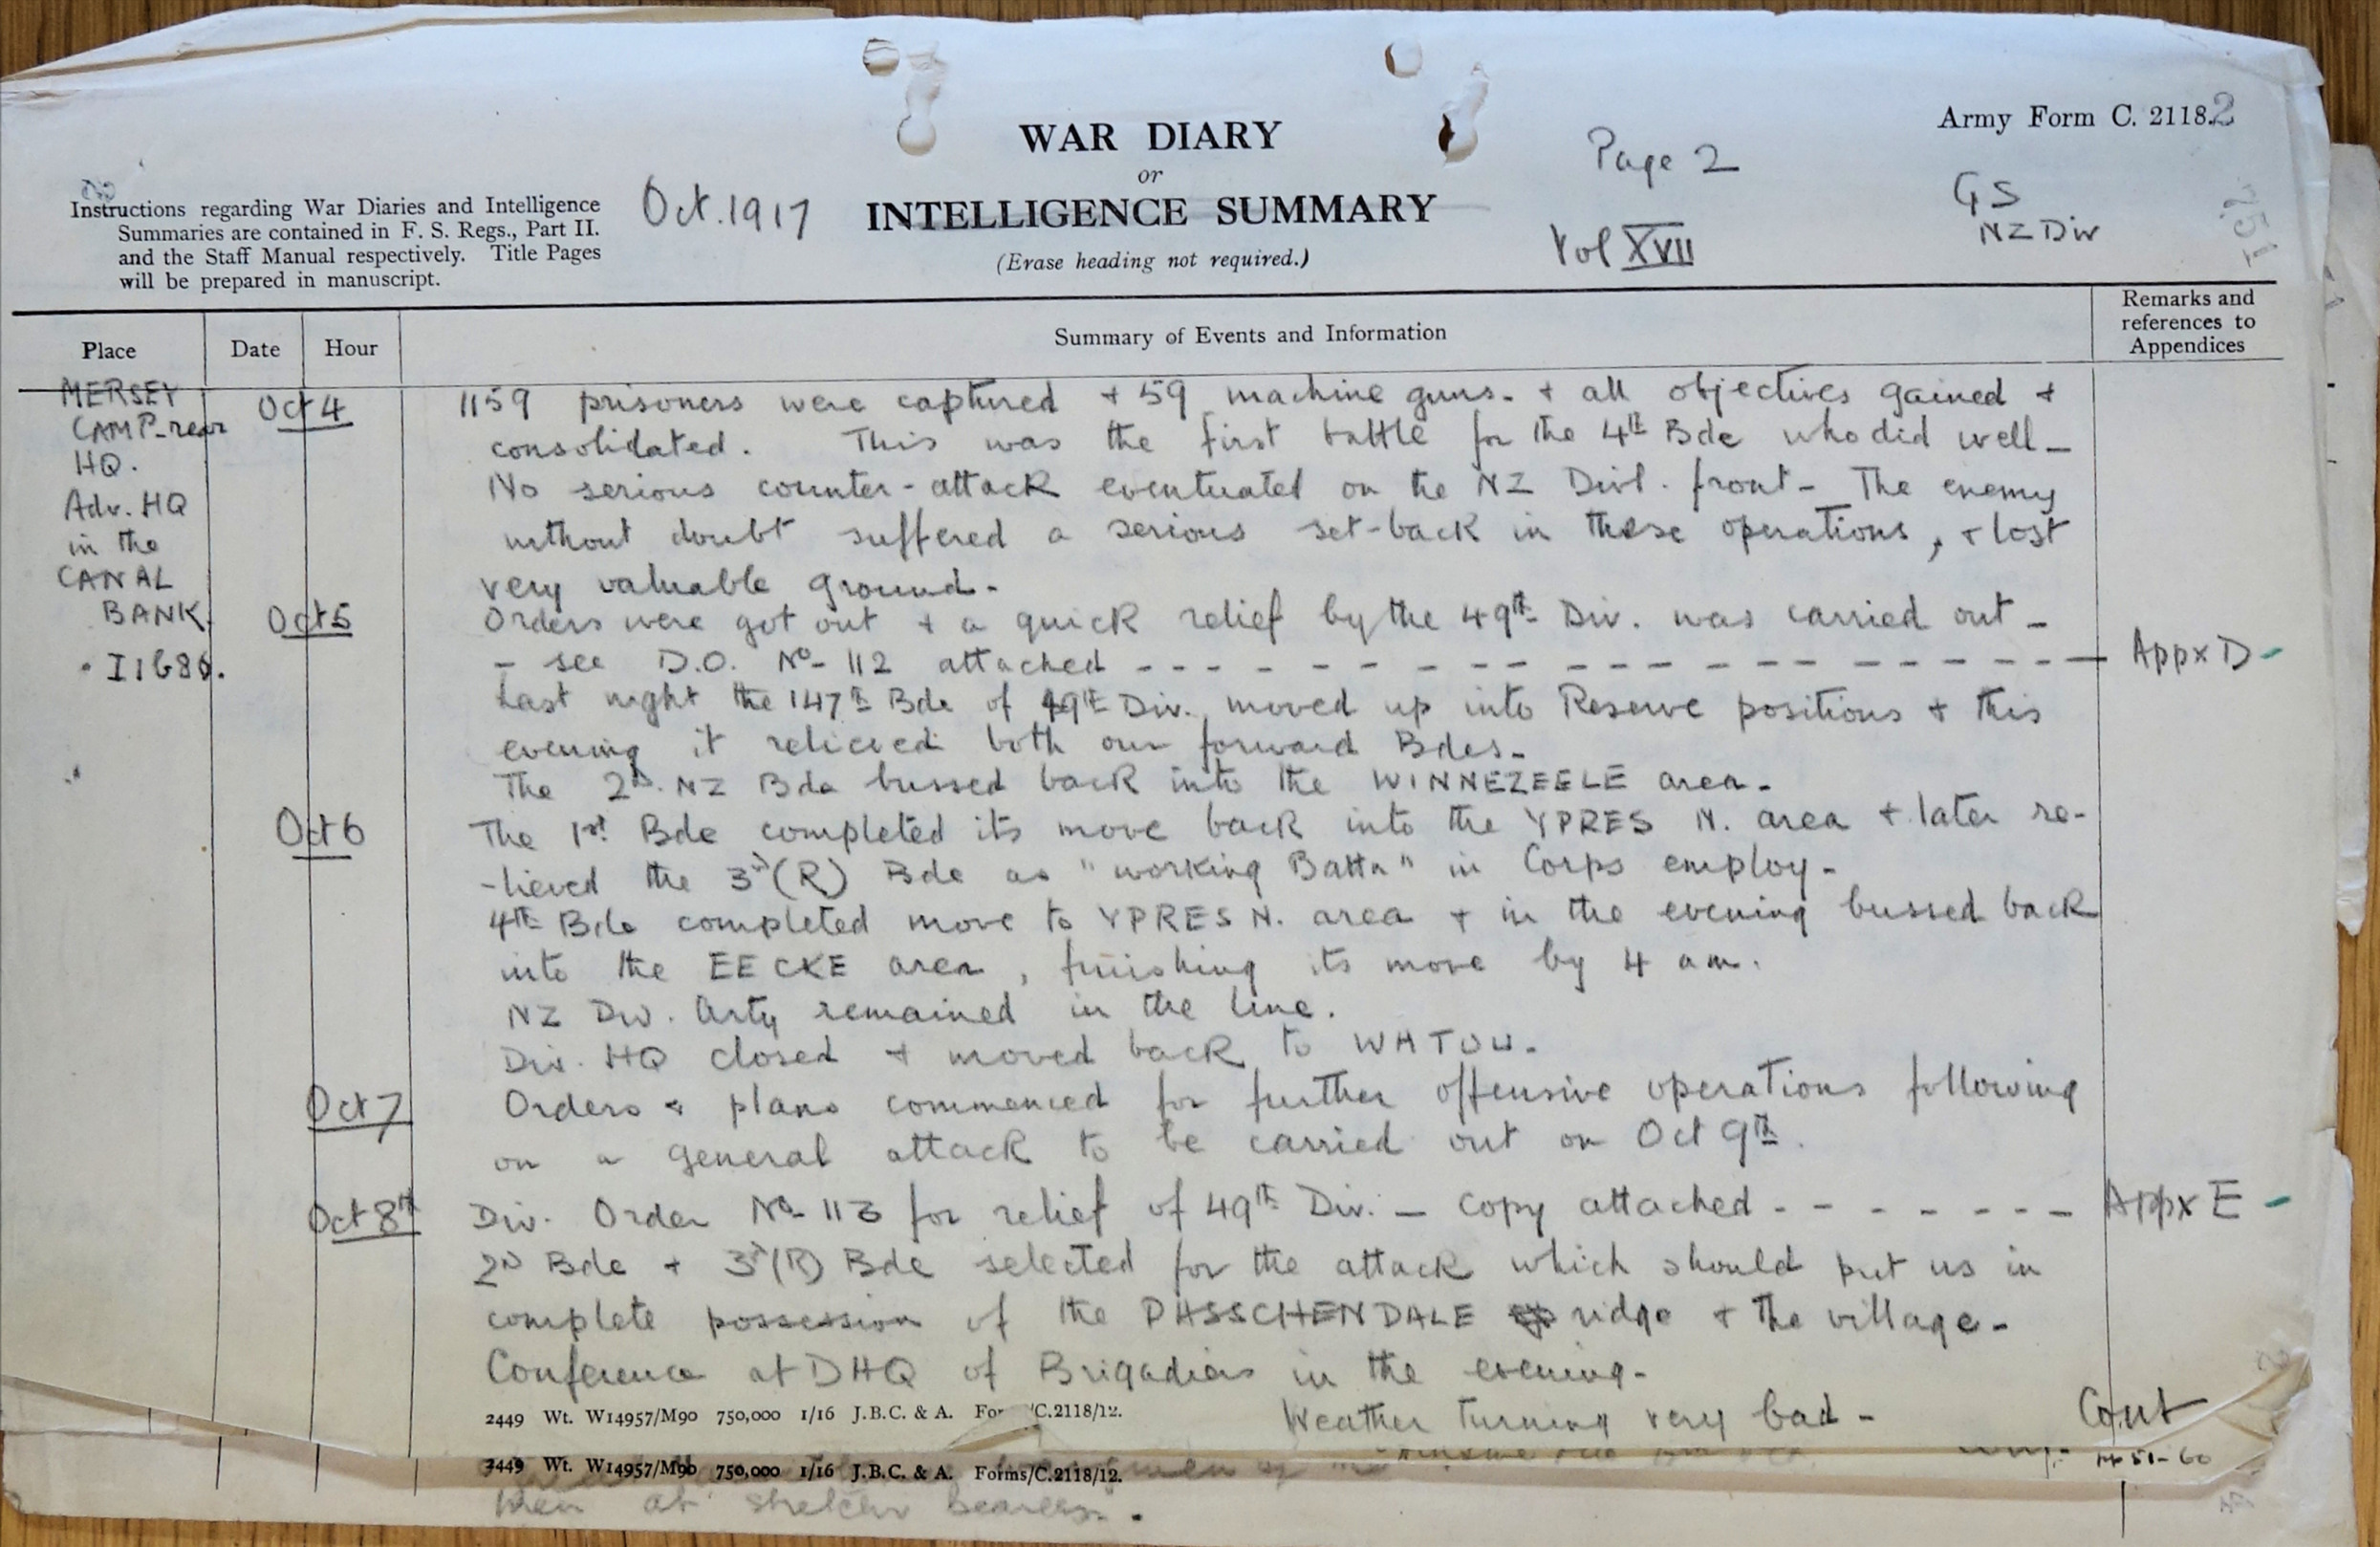 WAR DIARY
or
INTELLIGENCE SUMMARY
(Erase heading not required.)
Army Form C. 2118.
2
Page 2
Vol XVII
GS
NZ Div
751
Oct. 1917
Instructions regarding War Diaries and Intelligence
Summaries are contained in F. S. Regs., Part II.
and the Staff Manual respectively. Title Pages
will be prepared in manuscript.
Place Date Hour Summary of Events and Information
Remarks and
references to
Appendices
MERSEY
CAMP-rear
HQ.
Adv. HQ
in the
CANAL
BANK.
Oct 4 1159 prisoners were captured + 59 machine guns - + all objectives gained +
consolidated. This was the first battle for the 4th Bde who did well -
No serious counter-attack eventuated on the NZ Divl. front - The enemy
without doubt suffered a serious set-back in these operations, + lost
very valuable ground -
Oct 5 Orders were got out + a quick relief by the 49th Div. was carried out -
- see D.O. No 112 attached - - - - - - - - - - - - - - - Appx D -
Last night the 147th Bde of 49th Div. moved up into Reserve positions + this
evening it relieved both our forward Bdes -
The 2nd. NZ Bde bussed back into the WINNEZEELE area -
Oct 6 The 1st Bde completed its move back into the YPRES N. area + later re-
-lieved the 3rd (R) Bde as "working Battn" in Corps employ -
4th Bde completed move to YPRES N. area + in the evening bussed back
into the EECKE area, finishing its move by 4 am.
NZ Div. Arty remained in the line.
Div. HQ closed + moved back to WATOU -
Oct 7 Orders & plans commenced for further offensive operations following
on a general attack to be carried out on Oct 9th.
Oct 8th Div. Order No 113 for relief of 49th Div. - copy attached - - - - - - - Appx E -
2nd Bde + 3rd (R) Bde selected for the attack which should put us in
complete possession of the PASSCHENDALE ridge + the village -
Conference at DHQ of Brigadiers in the evening -
Weather turning very bad - Cont
2449 Wt. W14957/M90 750,000 1/16 J.B.C. & A. For /C.2118/12.
2449 Wt. W14957/M90 750,000 1/16 J.B.C. & A. Forms/C.2118/12.
51-60
men as stretcher bearers.